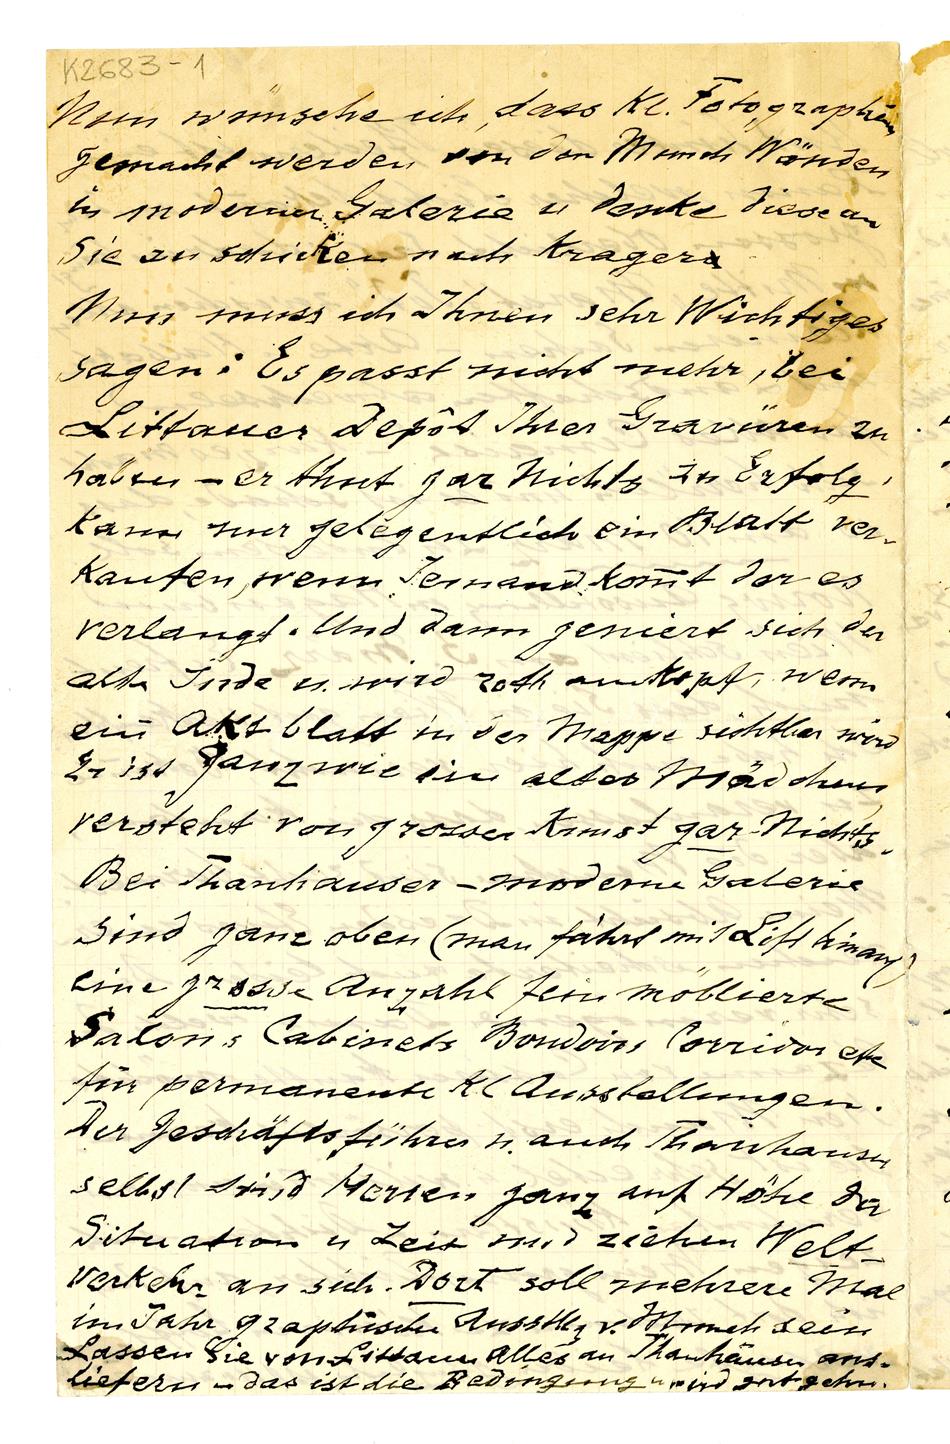 K2683-1
Nun wünsche ich, dass Kl. Fotographien
gemacht werden von den Munch Wänden
in moderner Galerie u denke diese an
Sie zu schicken nach Kragerø
Nun muss ich Ihnen sehr Wichtiges
sagen: Es passt nicht mehr, bei
Littauer Depôt Ihrer Gravüren zu
haben – er thut gar Nichts zu Erfolg,
kann nur gelegentlich ein Blatt ver-
kaufen, wenn Jemand kom̄t der es
verlangt. Und dann geniert sich der
alte Jude u. wird roth am Kopf, wenn
ein Aktblatt in der Mappe sichtbar wird
Er ist ganz wie ein altes Mädchen
versteht von grosser Kunst gar Nichts.
Bei Thanhauser – moderne Galerie
sind ganz oben (man fährt mit Lift hinauf)
eine grosse Anzahl fein möblierte
Salons Cabinets Boudoirs Corridor etc
für permanente Kl Ausstellungen.
Der Geschäftsführer u. auch Thanhauser
selbst sind Herren ganz auf Höhe der
Situation u Zeit und ziehen Welt-
verkehr an sich. Dort soll mehrere Mal
im Jahr graphische Ausstllg v. Munch sein
Lassen Sie von Littauer Alles an Thanhäuser aus-
liefern – das ist die Bedingung u wird gut gehn.